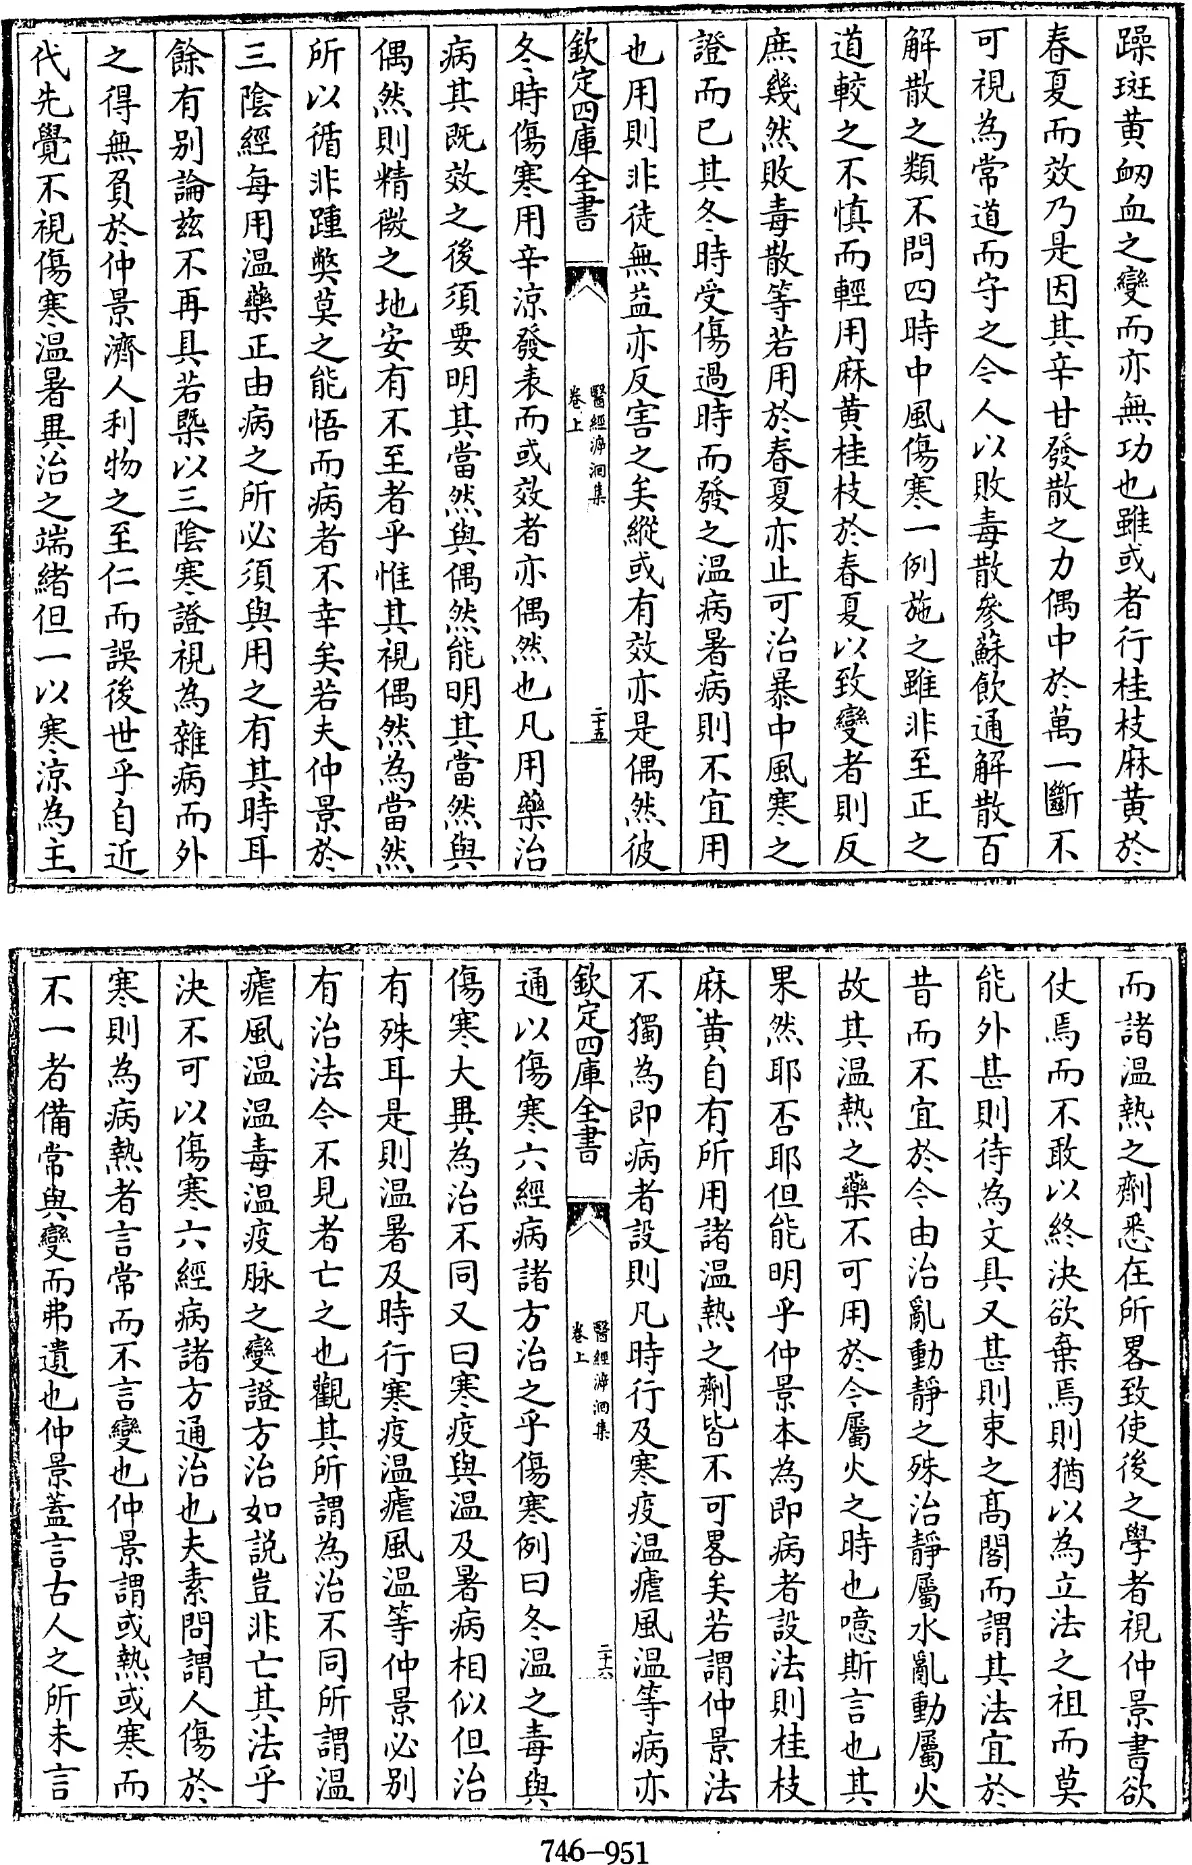 躁斑黄衂血之變而亦無功也雖或者行桂枝麻黄於
春夏而效乃是因其辛甘發散之力偶中於萬一斷不
可視為常道而守之今人以敗毒散參蘇飲通解散百
解散之類不問四時中風傷寒一例施之雖非至正之
道較之不慎而輕用麻黄桂枝於春夏以致變者則反
庶幾然敗毒散等若用於春夏亦止可治暴中風寒之
證而已其冬時受傷過時而發之温病暑病則不宜用
也用則非徒無益亦反害之矣縱或有效亦是偶然彼
欽定四庫全書 醫經溯洄集 卷上 二十五
冬時傷寒用辛涼發表而或效者亦偶然也凡用藥治
病其既效之後須要明其當然與偶然能明其當然與
偶然則精微之地安有不至者乎惟其視偶然為當然
所以循非踵獘莫之能悟而病者不幸矣若夫仲景於
三陰經每用温藥正由病之所必須與用之有其時耳
餘有别論兹不再具若槩以三陰寒證視為雜病而外
之得無負於仲景濟人利物之至仁而誤後世乎自近
代先覺不視傷寒温暑異治之端緒但一以寒涼為主
而諸温熱之劑悉在所畧致使後之學者視仲景書欲
仗焉而不敢以終決欲棄焉則猶以為立法之祖而莫
能外甚則待為文具又甚則束之高閣而謂其法宜於
昔而不宜於今由治亂動靜之殊治靜屬水亂動屬火
故其温熱之藥不可用於今屬火之時也噫斯言也其
果然耶否耶但能明乎仲景本為即病者設法則桂枝
麻黄自有所用諸温熱之劑皆不可畧矣若謂仲景法
不獨為即病者設則凡時行及寒疫温瘧風温等病亦
欽定四庫全書 醫經溯洄集 卷上 二十六
通以傷寒六經病諸方治之乎傷寒例曰冬温之毒與
傷寒大異為治不同又曰寒疫與温及暑病相似但治
有殊耳是則温暑及時行寒疫温瘧風温等仲景必别
有治法今不見者亡之也觀其所謂為治不同所謂温
瘧風温温毒温疫脉之變證方治如説豈非亡其法乎
決不可以傷寒六經病諸方通治也夫素問謂人傷於
寒則為病熱者言常而不言變也仲景謂或熱或寒而
不一者備常與變而弗遺也仲景蓋言古人之所未言
746-951